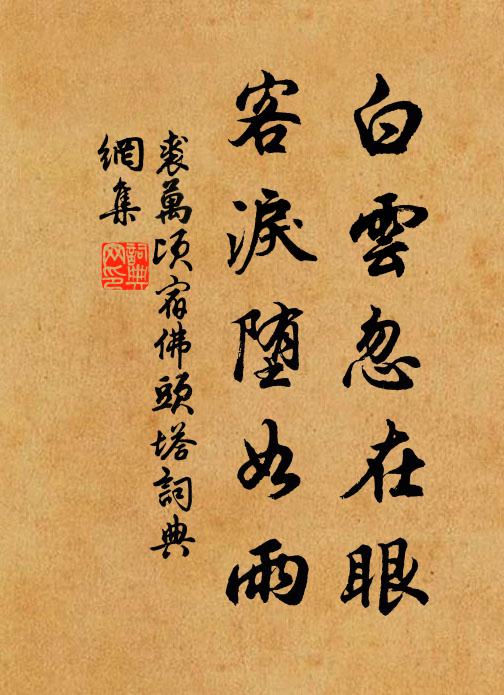 白雲忽在眼
客淚堕如雨
裘萬頃宿佛頭塔詞典
網集
詞典
网印